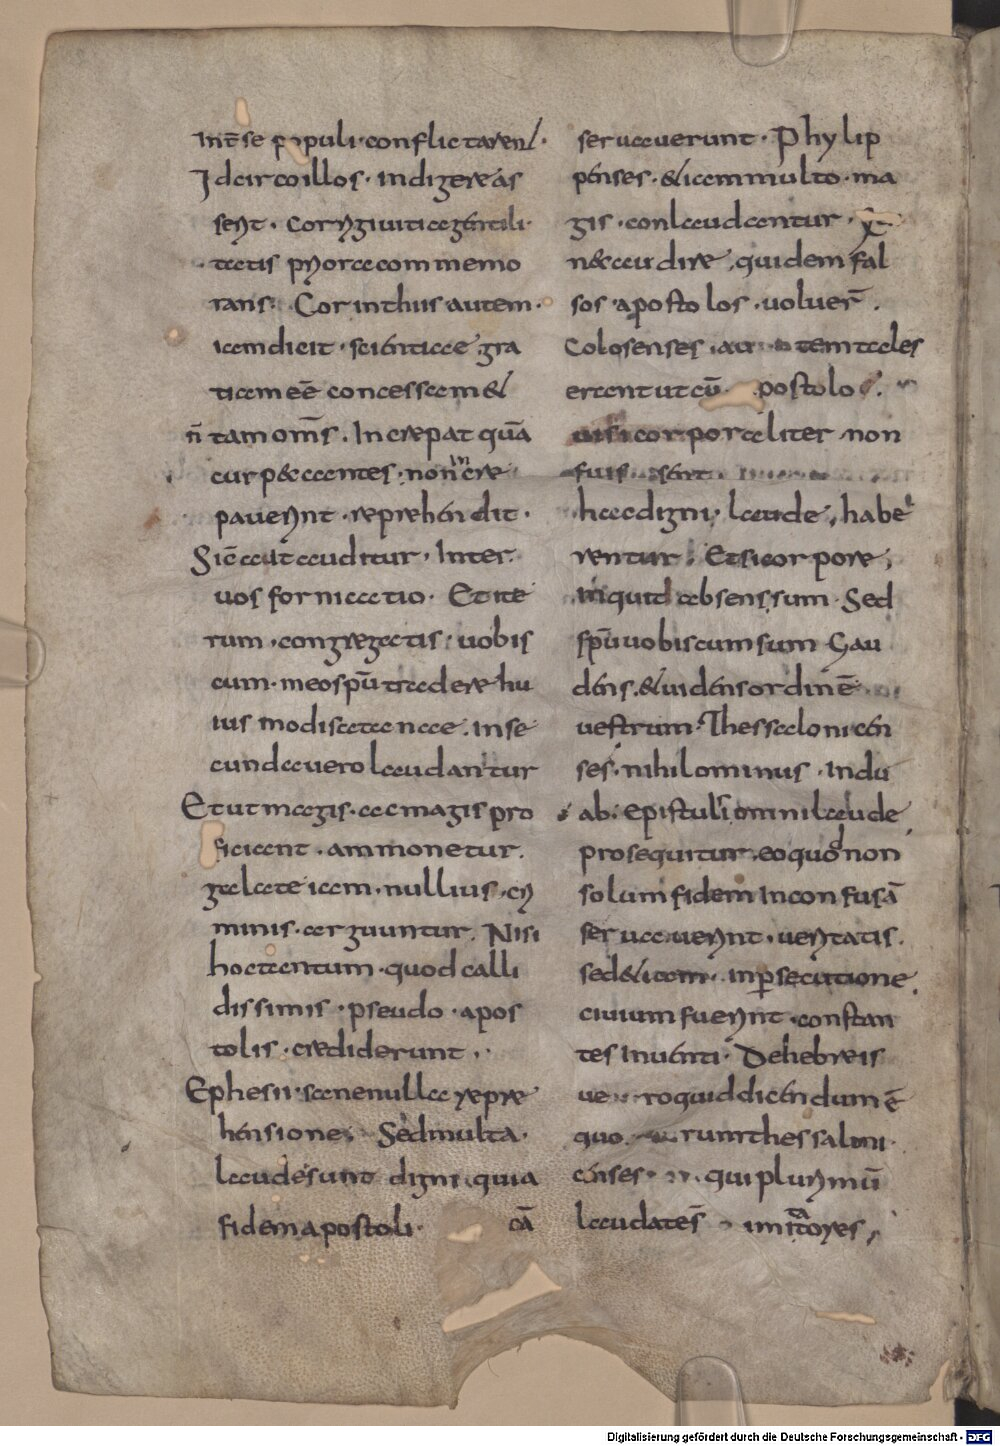 Int̄se populi · conflictarent ·
Idcirco illos · indigere as
sert · corrigi uitia gentili
tatis priora commemo
rans · Corinthiis autem ·
iam dicit · scientiae gra
tiam eē concessam &
n̄ tam om̄s · Increpat quā
cur peccantes · non incre
pauerint · reprehendit ·
Sic̄ aut auditur · Inter
uos fornicatio · Et ite
rum · congregatis · uobis
cum · meo spū tradere hu
ius modi satanae · In se
cunda uero laudantur
Et ut magis · ac magis pro
ficiant · ammonetur ·
galatae iam · nullius · cri
minis · arguuntur · Nisi
hoc tantum · quod calli
dissimis · pseudo · apos
tolis · crediderunt ·
Ephesii · sane nulla repre
hensione · Sed multa ·
laude sunt digni · quia
fidem apostoli · cā
seruauerunt · Phylip
penses · & iam multo · ma
gis · conlaudantur ·
nec audire · quidem fal
sos apostolos · uoluer̄ ·
Colosenses · autem tales
erant ut cū apostolo
uisi corporaliter non
fuissent
hac digni · laude · habe
rentur · Et si corpore ·
inquid absens sum · Sed
spū uobiscum sum Gau
dens · & uidens ordinē
uestrum · Thessalonicen
ses · nihilominus · In du
ab · epistulis omni laude
prosequitur · eo quod non
solum fidem inconfusā
seruauerunt · ueritatis ·
sed & iam · in p̱secutione ·
ciuium fuerint · constan
tes inuenti · De hebreis
uero quid dicendum ē
quorum thessaloni
censes · qui plurimū
laudatēs imitatores ·
Digitalisierung gefördert durch die Deutsche Forschungsgemeinschaft - DFG